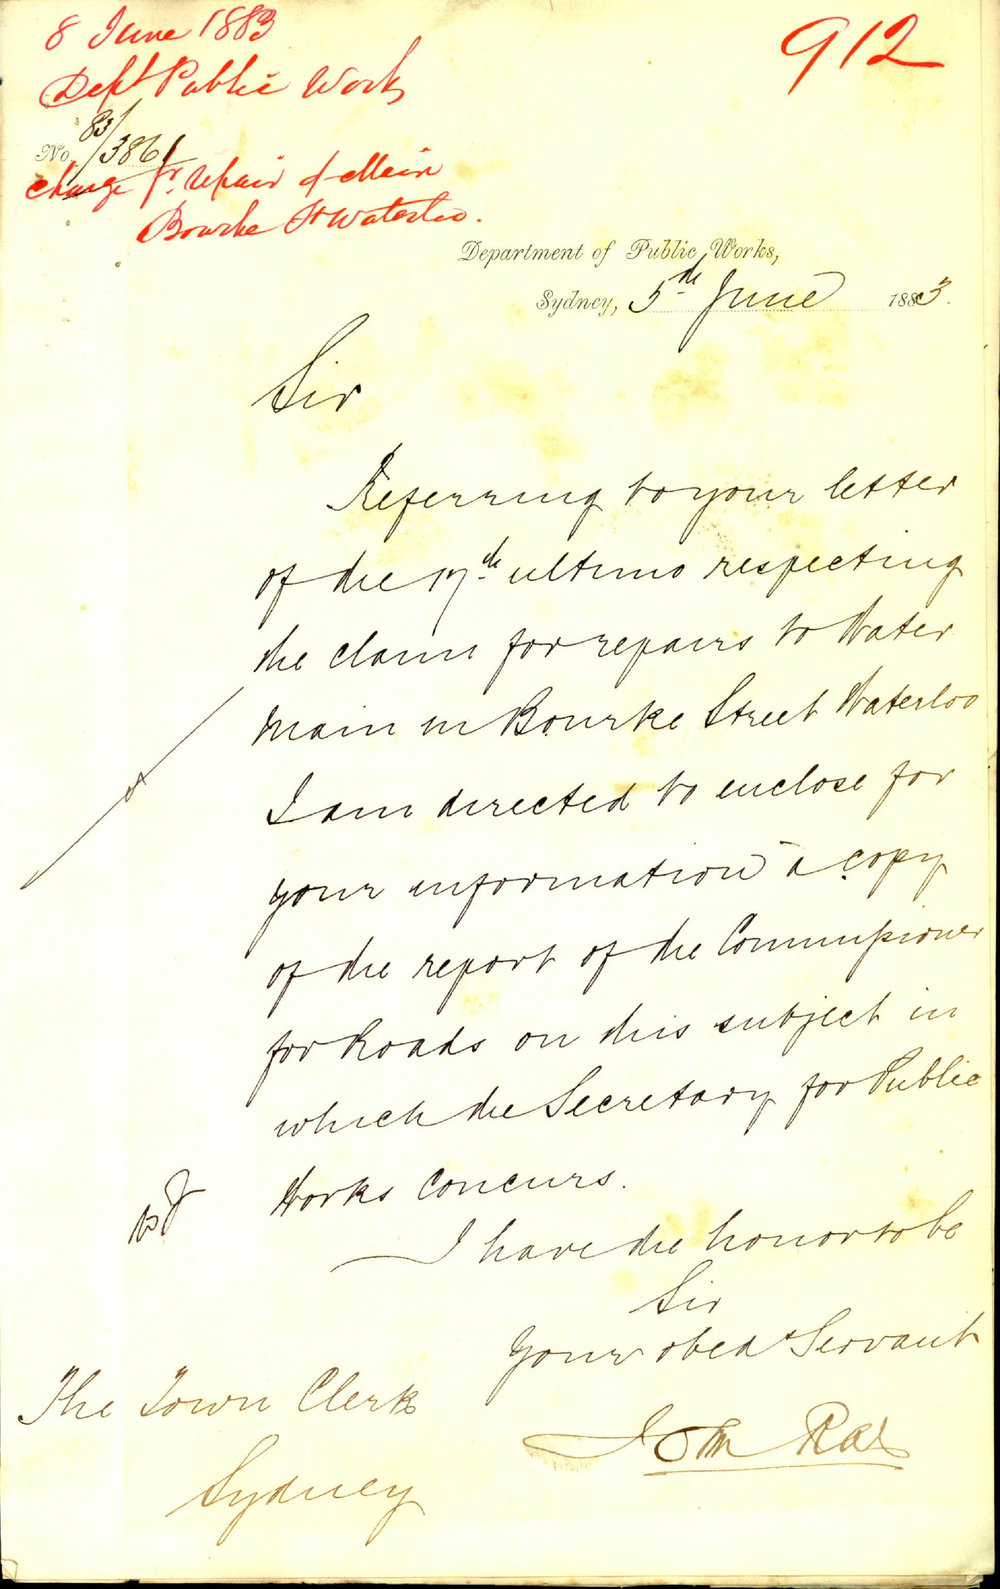 8 June 1883
Dept Public Works
912
No 83/386
Charge fr. repair of Main
Bourke St Waterloo.
Department of Public Works,
Sydney, 5th June 1883.
Sir
Referring to your letter
of the 17th ultimo respecting
the claim for repairs to Water
Main in Bourke Street Waterloo
I am directed to enclose for
your information a copy
of the report of the Commissioner
for Roads on this subject in
which the Secretary for Public
Works concurs.
I have the honor to be
Sir
Your obedt Servant
John Rae
The Town Clerk
Sydney